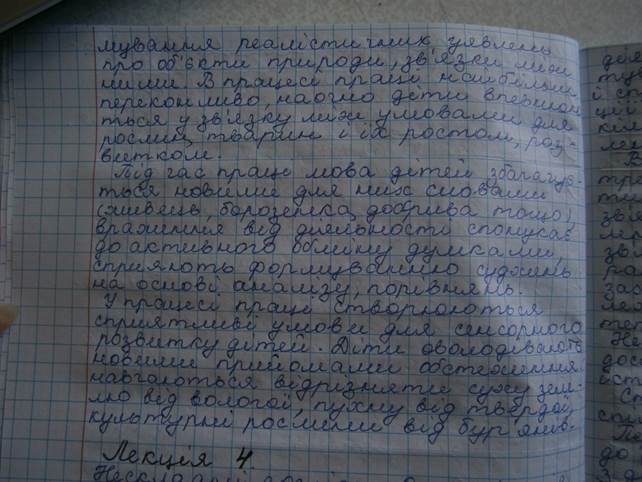 мування реалістичних уявлень
про об'єкти природи, зв'язки між
ними. В процесі праці найбільш
переконливо, наочно діти впевнюю-
ться у зв'язку між умовами для
рослин, тварин і їх ростом, роз-
витком.
Під час праці мова дітей збагачує-
ться новими для них словами
(живець, борозенка, добрива тощо),
враження від діяльності спонукає
до активного обміну думками,
сприяють формуванню суджень
на основі аналізу, порівнянь.
У процесі праці створюються
сприятливі умови для сенсорного
розвитку дітей. Діти оволодівають
новими прийомами обстеження
навчаються відрізняти суху зем-
лю від вологої, пухку від твердої,
культурні рослини від бур'янів.
Лекція 4